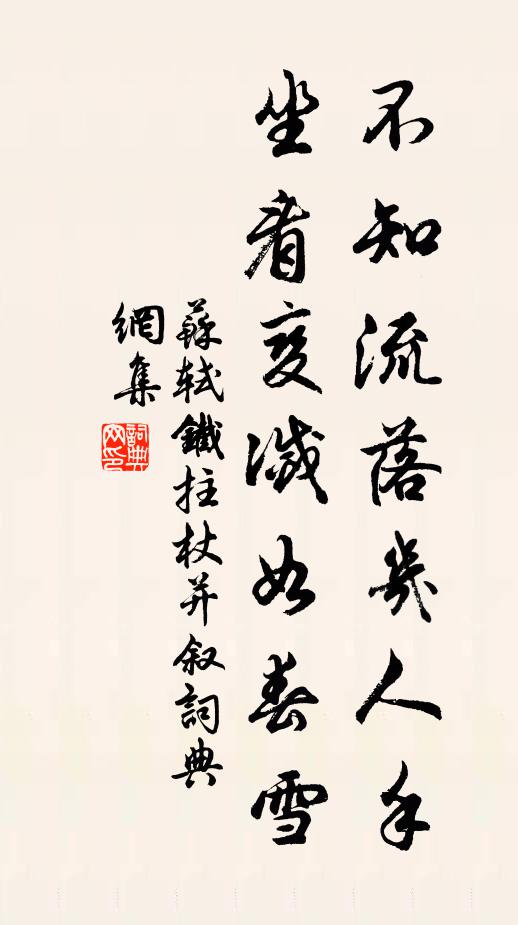 不知流落幾人手
坐看變滅如春雪
蘇軾鐵拄杖并叙詞典
網集
詞典
网印